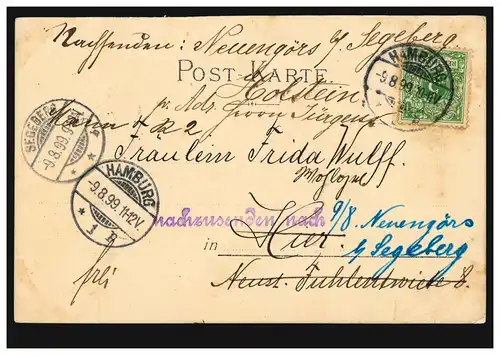 Nachsenden: Neuengörs b/ Segeberg
POST-KARTE.
Holstein
pr. Adr.
HAMBURG
-9.8.99.11-12V
SEGEBERG
-9.8.99.
Fräulein Frida Wulff
HAMBURG
-9.8.99.11-12V
* 1 n *
nachzusenden nach
9/8 Neuengörs
in Hier.
b/ Segeberg
Neust. Fuhlentwiete 8.
frei